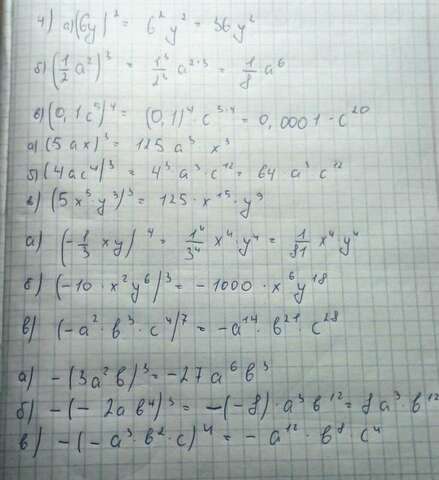 4) а) (6y)² = 6² y² = 36 y²
б) (1/2 a²)³ = 1³/2³ a²·³ = 1/8 a⁶
в) (0,1 c⁵)⁴ = (0,1)⁴ · c⁵·⁴ = 0,0001 · c²⁰
а) (5 ax)³ = 125 a³ x³
б) (4 ac⁴)³ = 4³ · a³ · c¹² = 64 · a³ c¹²
в) (5 x⁵ · y³)³ = 125 · x¹⁵ · y⁹
а) (-1/3 xy)⁴ = 1⁴/3⁴ x⁴ · y⁴ = 1/81 x⁴ · y⁴
б) (-10 · x² y⁶)³ = -1000 · x⁶ y¹⁸
в) (-a² · b³ · c⁴)⁷ = -a¹⁴ · b²¹ · c²⁸
а) -(3a² b)³ = -27 a⁶ b³
б) -(-2a b⁴)³ = -(-8) · a³ b¹² = 8 a³ · b¹²
в) -(-a³ · b² · c)⁴ = -a¹² · b⁸ c⁴